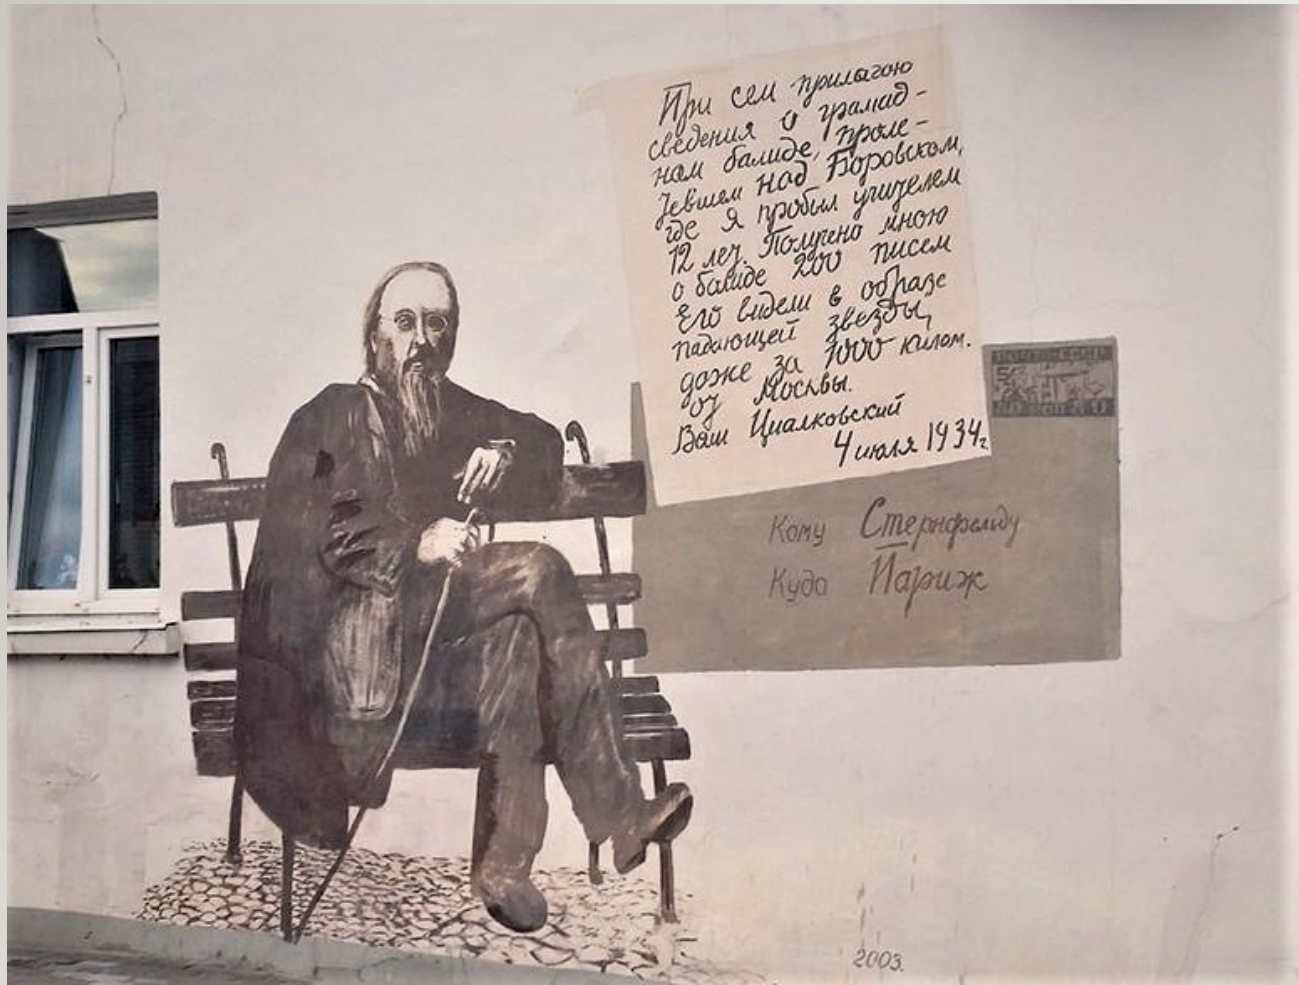 При сем прилагаю
сведения о грамад-
нам балиде, проле-
тевшем над Боровском,
где я пробыл учителем
12 лет. Получено мною
о балиде 200 писем
Его видели в образе
падающей звезды,
даже за 1000 килом.
от Москвы.
Ваш Циалковский
4 июля 1934г.
Кому Стернфельду
Куда Париж
2003.